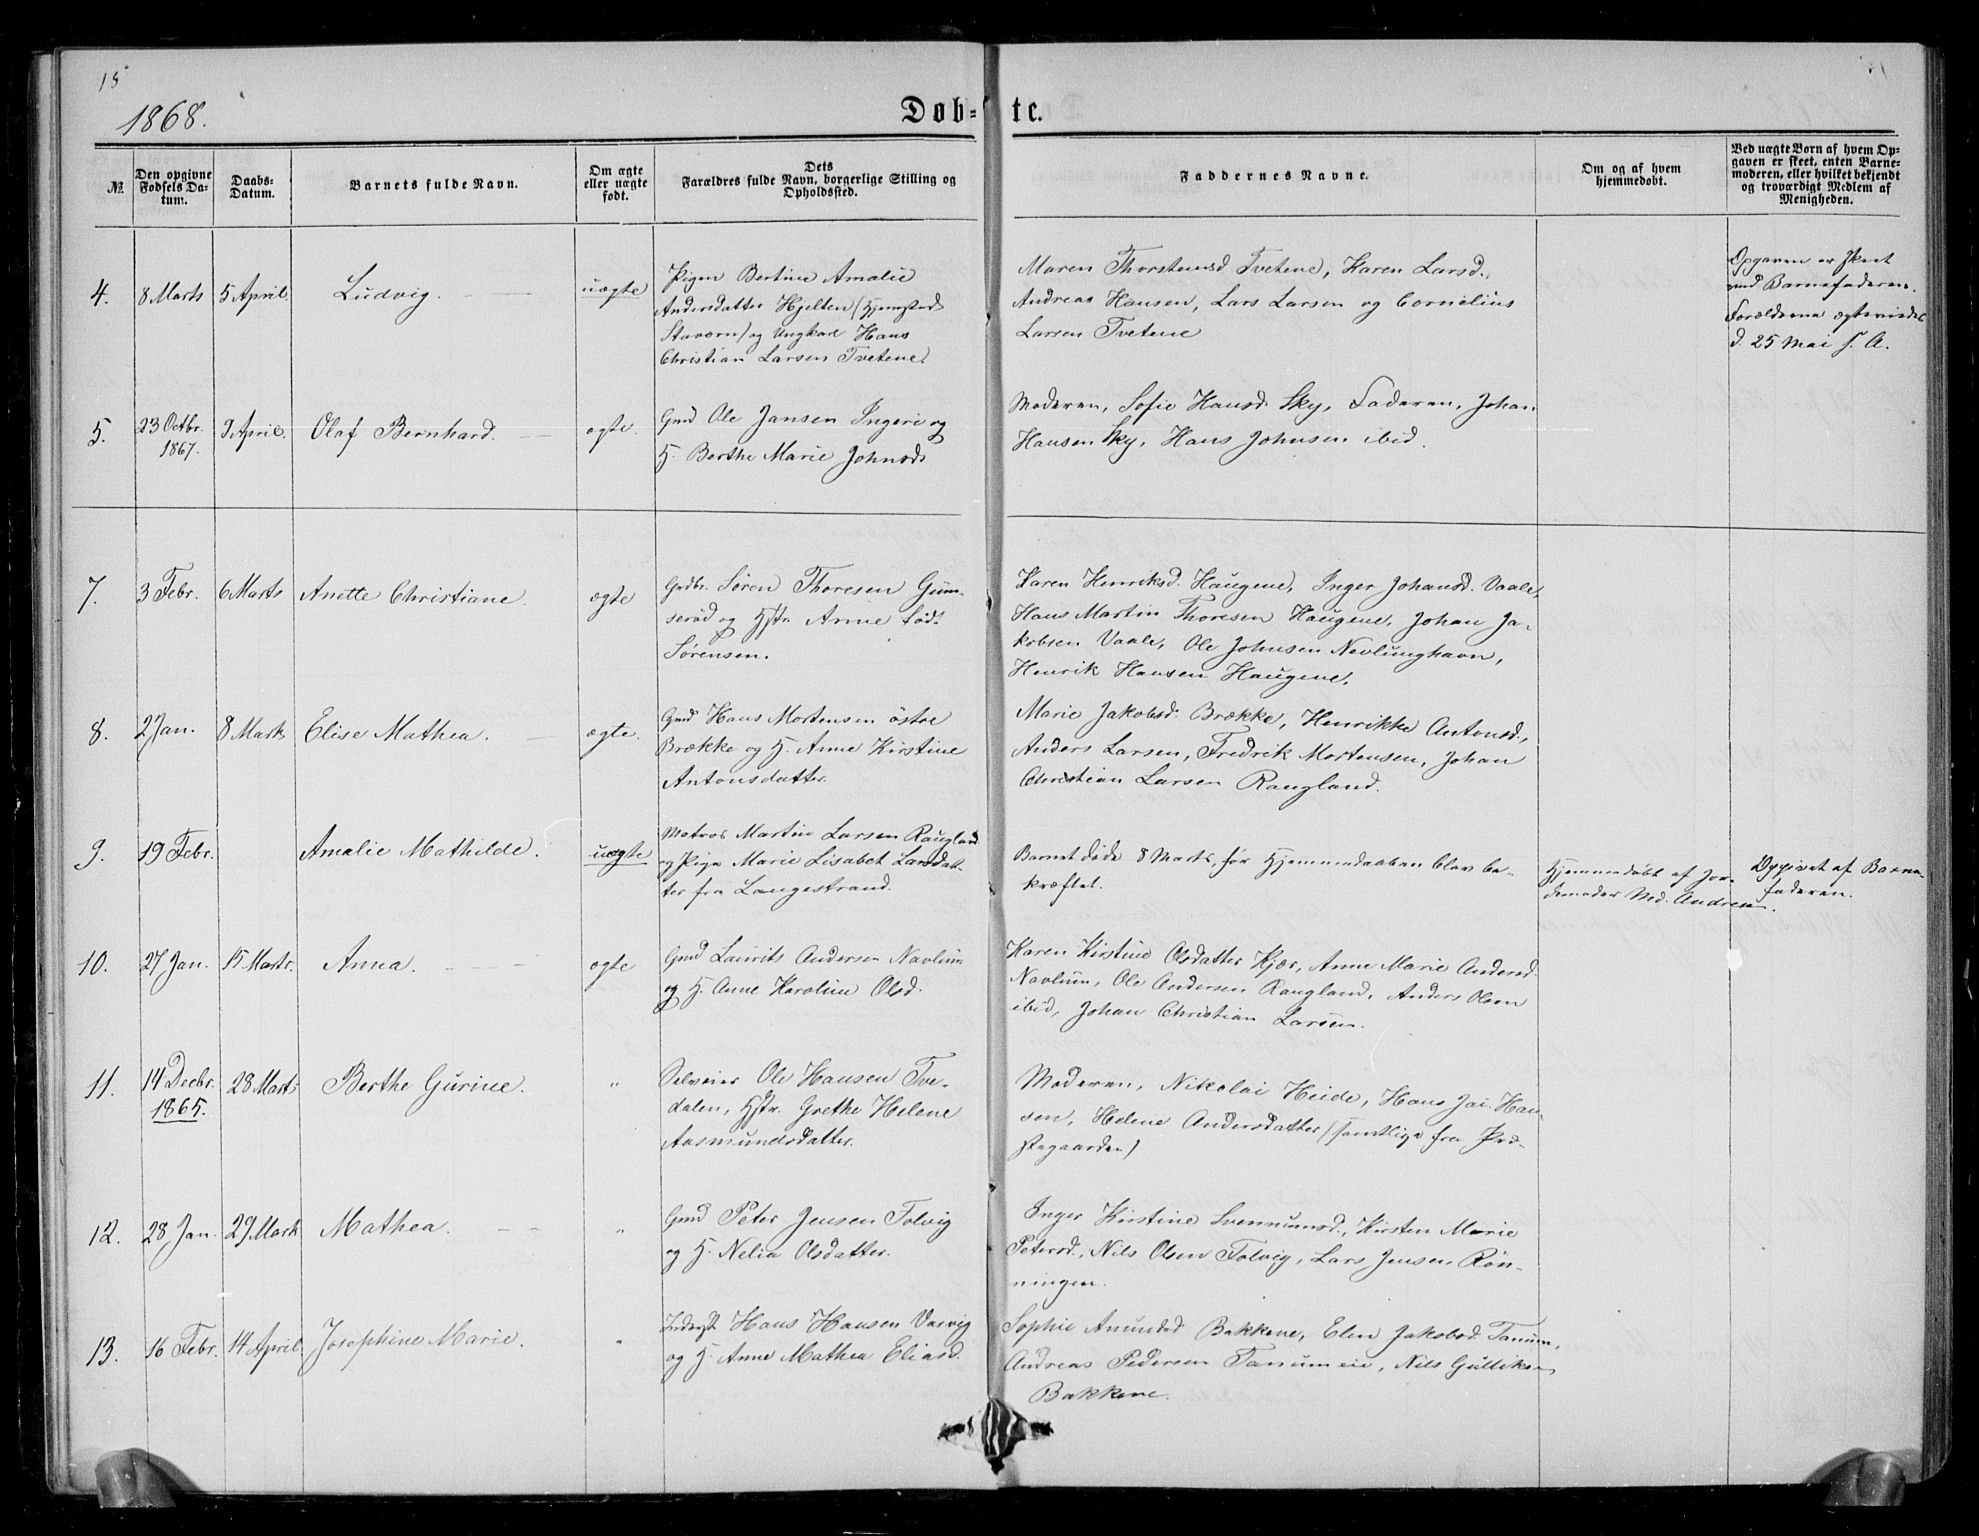 15
1868.
Døbte.
№
Den opgivne Fødsels Datum.
Daabs-Datum.
Barnets fulde Navn.
Om ægte eller uægte født.
Dets Farældres fulde Navn, borgerlige Stilling og Opholdssted.
Faddernes Navne.
Om og af hvem hjemmedøbt.
Ved uægte Børn af hvem Opgaven er skeet, enten Barnemoderen, eller hvilket bekjendt og troværdigt Medlem af Menigheden.
4. 8 Marts 5 April. Ludvig. uægte
Pigen Bertine Amalie
Andersdatter Hjelten (Hjemsted
Stavern) og Ungkarl Hans
Christian Larsen Tvetene.
Maren Thorstensd Tvetene, Karen Larsd.,
Andreas Hansen, Lars Larsen og Cornelius
Larsen Tvetene
Opgaven er skeet
ved Barnefaderen.
Forældrene ægteviedes
d. 25 Mai s. A.
5. 23 Octbr. 1867. 9 April. Olaf Bernhard. ægte.
Gmd Ole Jansen Ingeri og
H. Berthe Marie Johnsd.
Moderen, Sofie Hansd. Sky, Faderen, Johan
Hansen Sky, Hans Johnsen ibid.
7. 3 Febr. 6 Marts Anette Christiane. ægte
Grdbr. Søren Thoresen Gum-
serød og Hstr. Anne født
Sørensen.
Karen Henriksd. Haugene, Inger Johansd. Vaale,
Hans Martin Thoresen Haugene, Johan Ja-
kobsen Vaale, Ole Johnsen Nevlunghavn,
Henrik Hansen Haugene.
8. 2 Jan. 8 Marts Elise Mathea. ægte.
Gmd Hans Mortensen østre
Brække og H. Anne Kirstine
Antonsdatter.
Marie Jakobsd. Brække, Henrikke Antonsd.,
Anders Larsen, Fredrik Mortensen, Johan
Christian Larsen Raugland.
9. 19 Febr. Amalie Mathilde. uægte
Matros Martin Larsen Raugland
og Pige Marie Lisabet Larsdat-
ter fra Langestrand.
Barnet døde 8 Marts, før Hjemmedaaben blev be-
kræftet.
Hjemmedøbt af Jor-
demoder Md. Andresen.
Opgivet af Barne-
faderen.
10. 27 Jan. 15 Marts. Anna. ægte
Gmd Laurits Andersen Navlum
og H. Anne Karoline Olsd.
Karen Kirstine Olsdatter Kjær, Anne Marie Andersd.
Navlum, Ole Andersen Raugland, Anders Olsen
ibid, Johan Christian Larsen.
11. 14 Decbr. 1865. 28 Marts Berthe Gurine. "
Selveier Ole Hansen Tve-
dalen, Hstr. Grethe Helene
Aasmundsdatter.
Moderen, Nikolai Heide, Hans Jac. Han-
sen, Helene Andersdatter (samtlige fra Præ-
stegaarden)
12. 28 Jan. 29 Marts Mathea. "
Gmd Peter Jensen Folvig
og H. Nelia Olsdatter.
Inger Kirstine Svennumsd., Kirsten Marie
Petersd., Nils Olsen Folvig, Lars Jensen Røn-
ningen.
13. 16 Febr. 14 April. Josephine Marie. "
Inderst Hans Hansen Varvig
og H. Anne Mathea Eliasd.
Sophie Amundsd Bakkene, Elen Jakobsd. Tanum,
Andreas Pedersen Tanumeie, Nils Gulliksen
Bakkene.